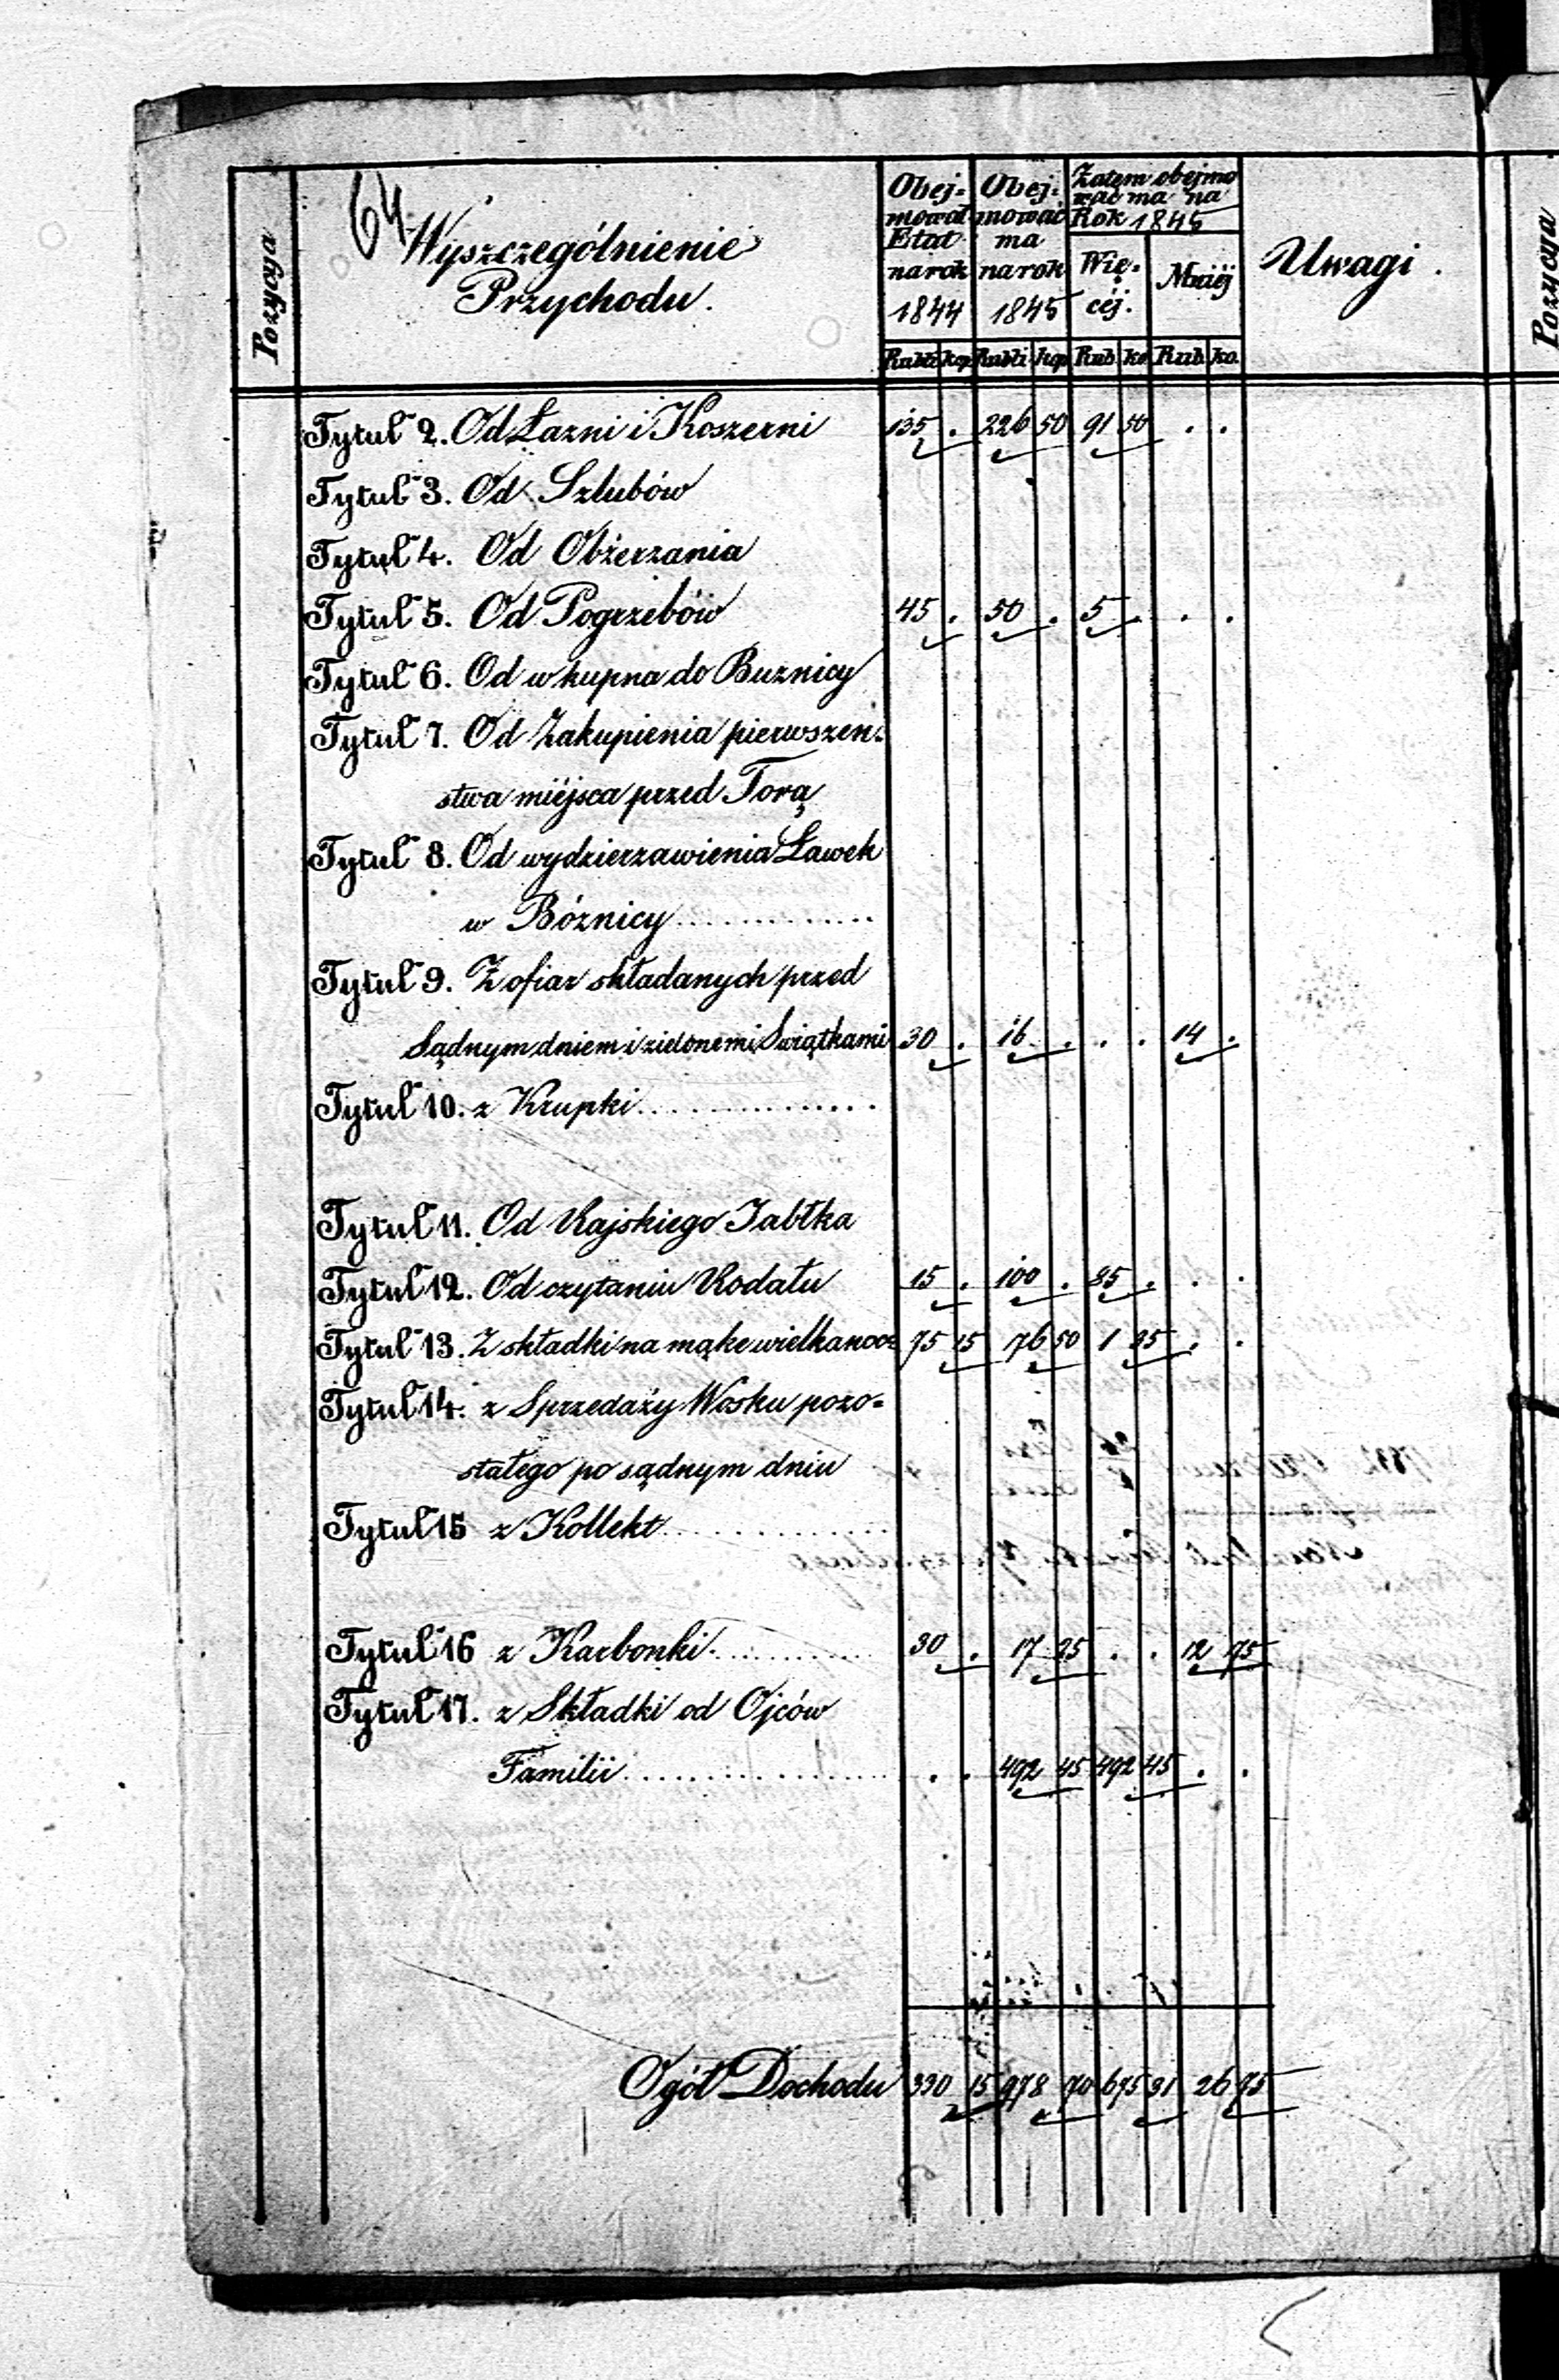 64
Pozycya
Wyszczególnienie
Przychodu.
Obej-
mował
Etat
na rok
1844
Obej-
mować
ma
na rok
1845
Zatem obejmo
wać ma na
Rok 1845
Wię-
céj.
Mniéj
Uwagi.
Pozycya
Rubli kop Rubli kop Rub ko Rub. ko.
Tytuł 2. Od Łazni i Koszerni 135 . 226 50 91 50 . .
Tytuł 3. Od Szlubów
Tytuł 4. Od Obżerzania
Tytuł 5. Od Pogrzebów 45 . 50 . 5 . . .
Tytuł 6. Od wkupna do Buznicy
Tytuł 7. Od Zakupienia pierwszeń-
stwa miéjsca przed Torą
Tytuł 8. Od wydzierzawienia Ławek
w Bóznicy..............
Tytuł 9. Z ofiar składanych przed
Sądnym dniem i zielonemi Swiątkami 30 . 16 . . . 14 .
Tytuł 10. z Krupki...............
Tytuł 11. Od Rajskiego Jabłka
Tytuł 12. Od czytaniu Rodału 15 . 100 . 85 . . .
Tytuł 13. Z składki na mąke wielkanoc= 75 15 76 50 1 35 . .
Tytuł 14. z Sprzedaży Wosku pozo=
stałego po sądnym dniu
Tytuł 15 z Kollekt.............
Tytuł 16 z Karbonki............ 30 . 17 25 . . 12 75
Tytuł 17. z Składki od Ojców
Familii.................. . . 492 45 492 45 . .
Ogół Dochodu 330 15 978 70 675 31 26 75